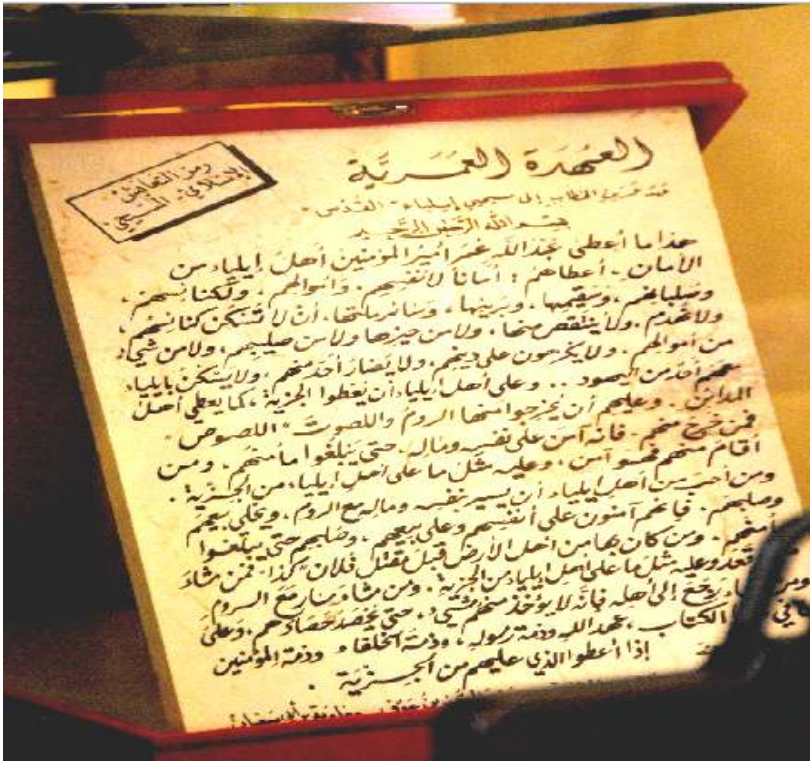 العُهْدَة العُمَرِيَّة
رمز التعايش
الإسلامي - المسيحي
إلى مسيحيي إيلياء "القُدس"
بسم الله الرحمن الرحيم
هذا ما أعطى عَبْدُ اللهِ عُمَرُ أميرُ المؤمنين أهلَ إيلياء من
الأمان. أعطاهُمْ: أماناً لأنفسِهم. وأموالهم. ولكنائسهم،
وصلبانهم، وسقيمها، وبريئها، وسائر ملتها، أنْ لا تُسْكَن كنائسهم،
ولا تُهدم. ولا ينتقص منها. ولا من حيزها ولا من صليبهم، ولا من شيء
من أموالهم. ولا يكرهون على دينهم. ولا يُضار أحَد منهم. ولا يسكن بايلياء
معهم أحد من اليهود .. وعلى أهل ايلياء أن يُعطوا الجزية، كما يعطي أهل
المدائن. وعليهم أن يُخرجوا منها الرومُ واللصوتَ "اللصوص"
فمن خرج منهم. فانه آمن على نفسِه ومالِه. حتى يَبلغوا مأمنهم. ومن
أقام منهم فهو آمن. وعليه مثل ما على أهل إيلياء، من الجزية.
ومن أحب من أهل إيلياء أن يسير بنفسِه ومالِه مع الروم، ويخلى بيعهم
وصلبهم. فإنهم آمنون على أنفسهم وعلى بيعهم، وصلبهم حتى يبلغوا
مأمنهم. ومن كان بها من اهل الأرض قبلَ مقتل فلان "كذا". فمن شاء
قعد وعليه مثل ما على اهل ايلياء من الجزية. ومن شاء سار مع الروم
ومن شاء رجع إلى أهله فإنّه لا يؤخذ منهم شيء، حتى يُحصد حصادهم. وعلى
ما في الكتاب، عهد الله وذمة رسوله، وذمة الخلفاء وذمة المؤمنين
إذا أعطوا الذي عليهم من الجزيّة.